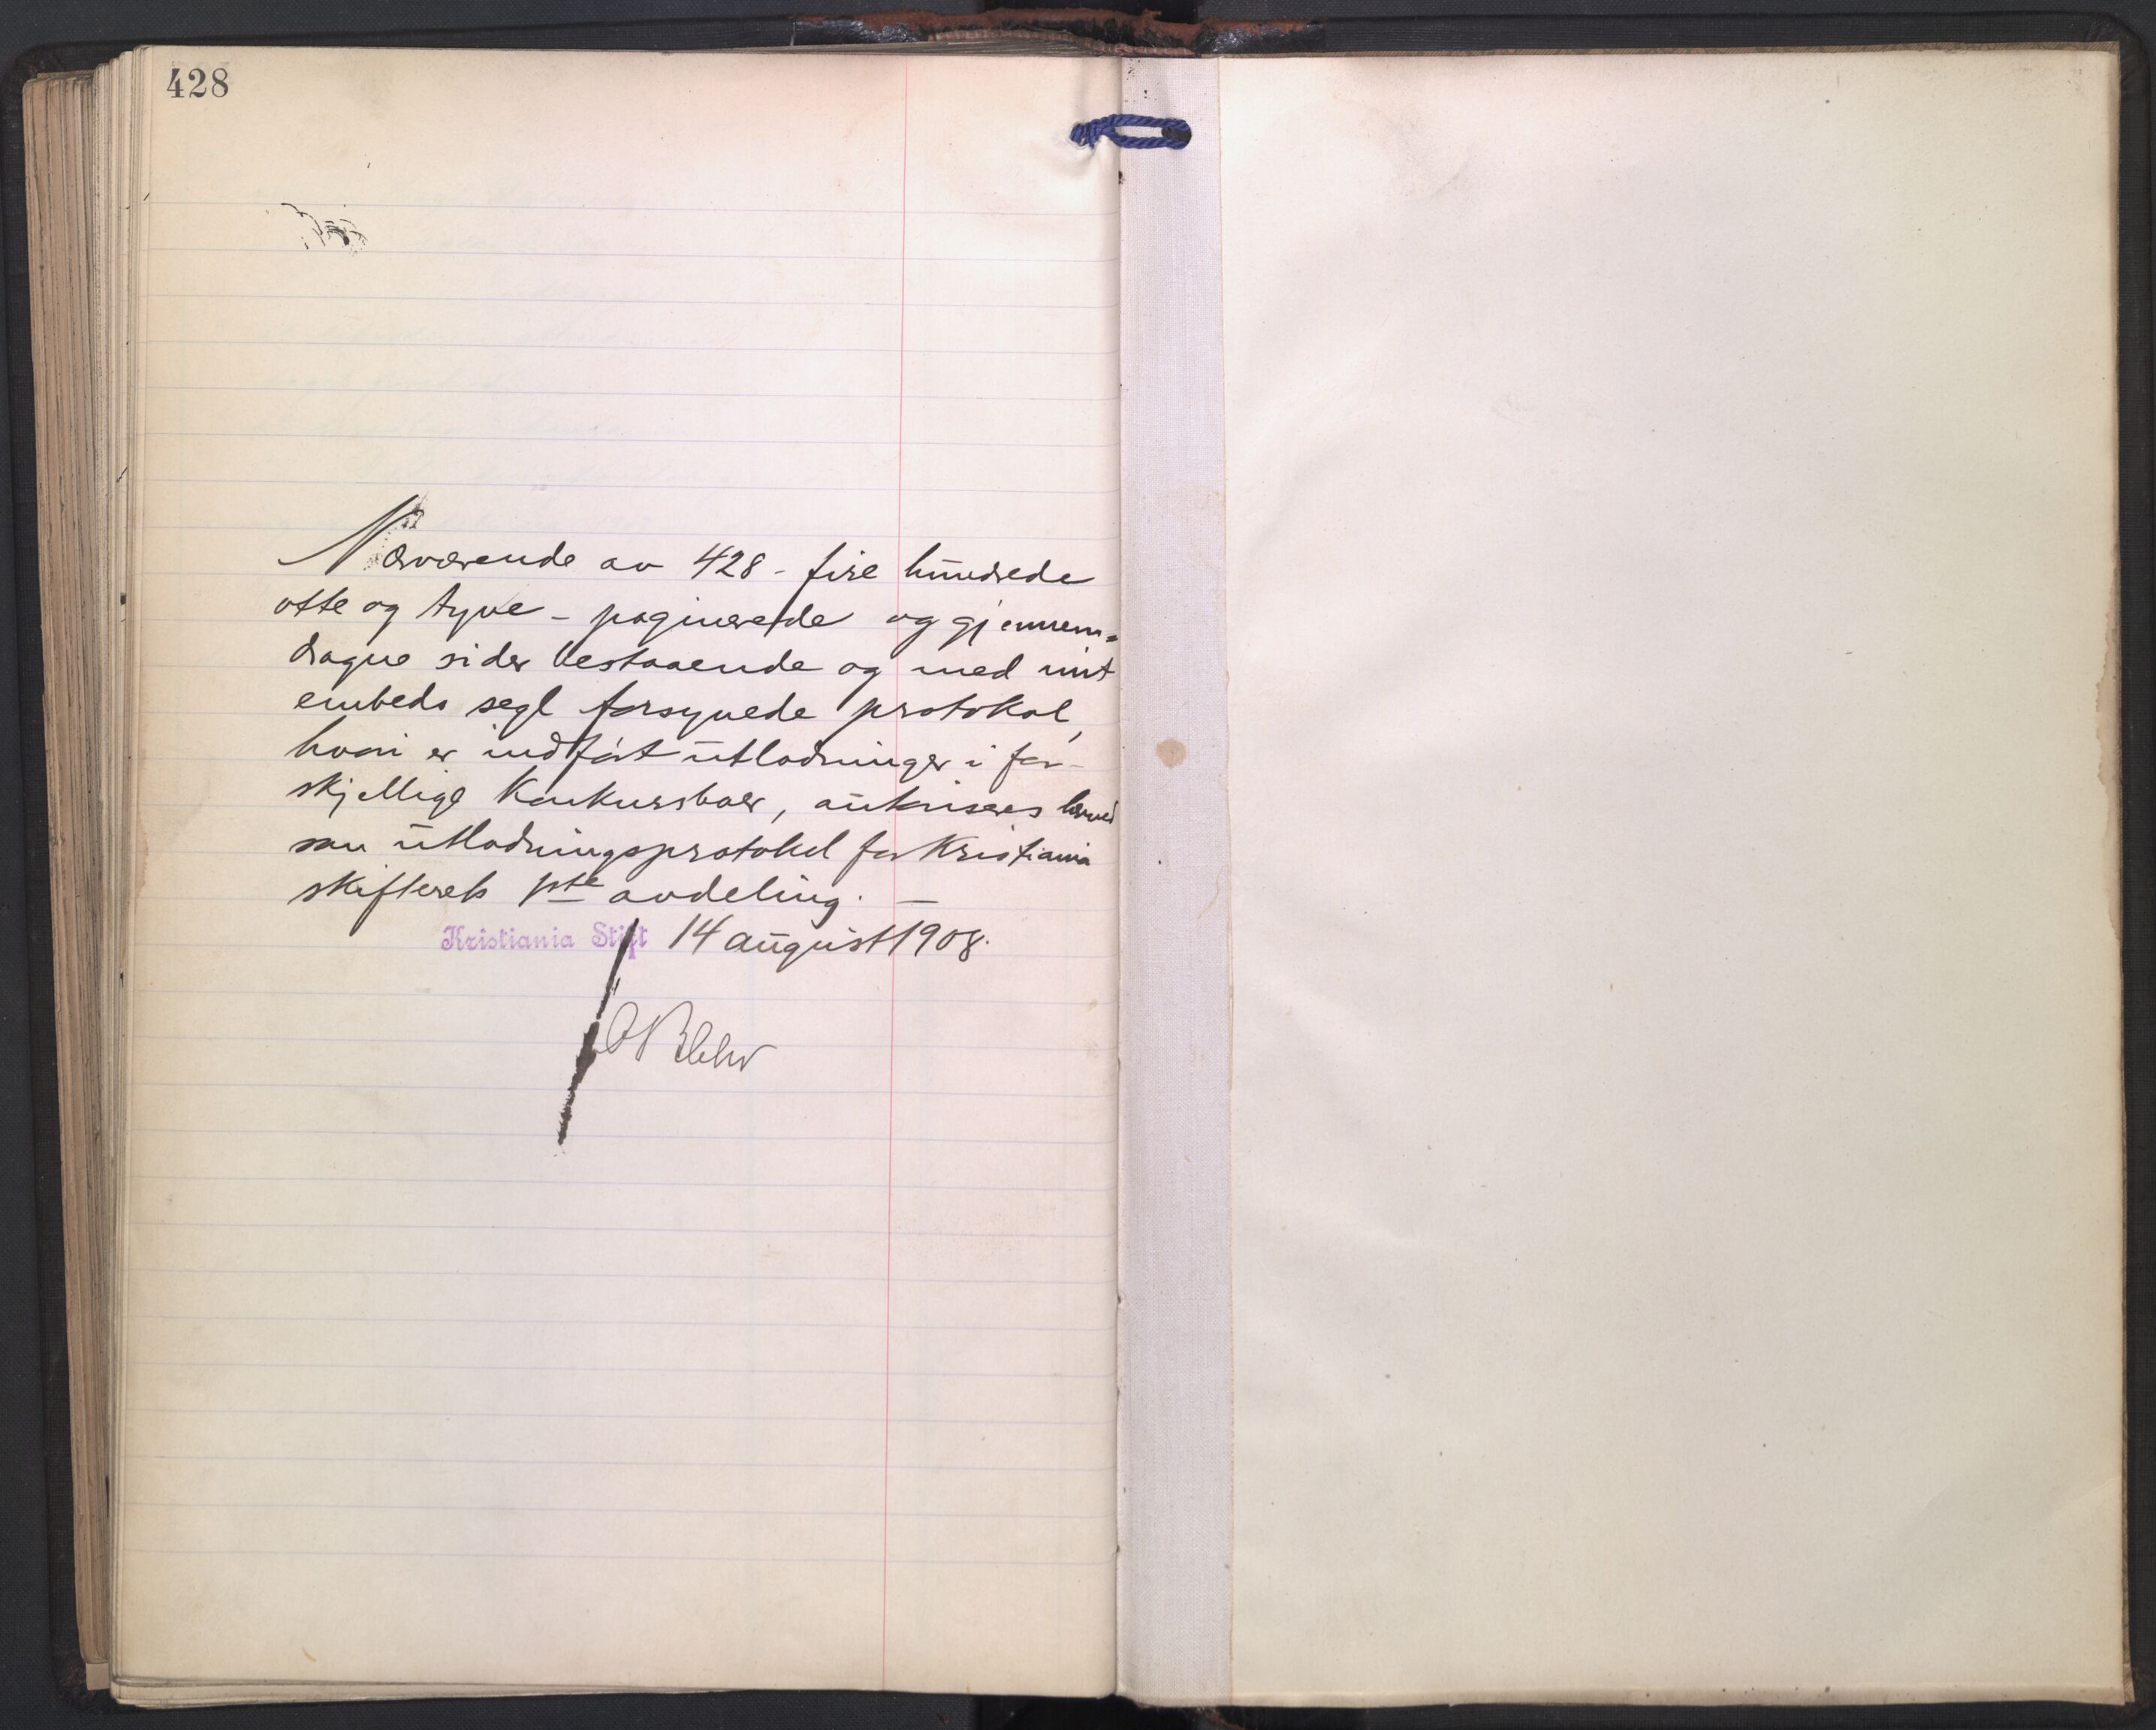 428
Nærværende av 428 - fire hundrede
otte og tyve - paginerede og gjennem=
dragne sider bestaaende og med mit
embeds segl forsynede protokol,
hvori er indført utlodninger i for-
skjellige konkursboer, autoriseres herved
som utlodningsprotokol for Kristiania
skifterets 1ste avdeling. —
Kristiania Stift 14 august 1908.
O Blehr